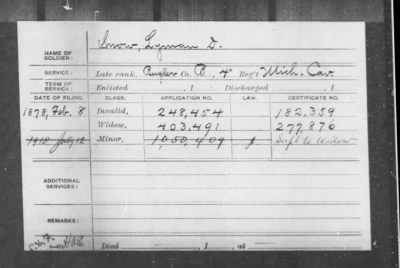 NAME OF SOLDIER: Snow, Lyman D.
SERVICE: Late rank, Bugler Co. B, 4 Reg't Mich. Cav.
TERM OF SERVICE: Enlisted , 1 Discharged , 1
DATE OF FILING. CLASS. APPLICATION NO. LAW. CERTIFICATE NO.
1878, Feb. 8 Invalid, 248,454 182,359
Widow, 403,491 277,876
1918 July 12 Minor, 1,050,409 Widow
ADDITIONAL SERVICES:
REMARKS:
Died , 1 , at